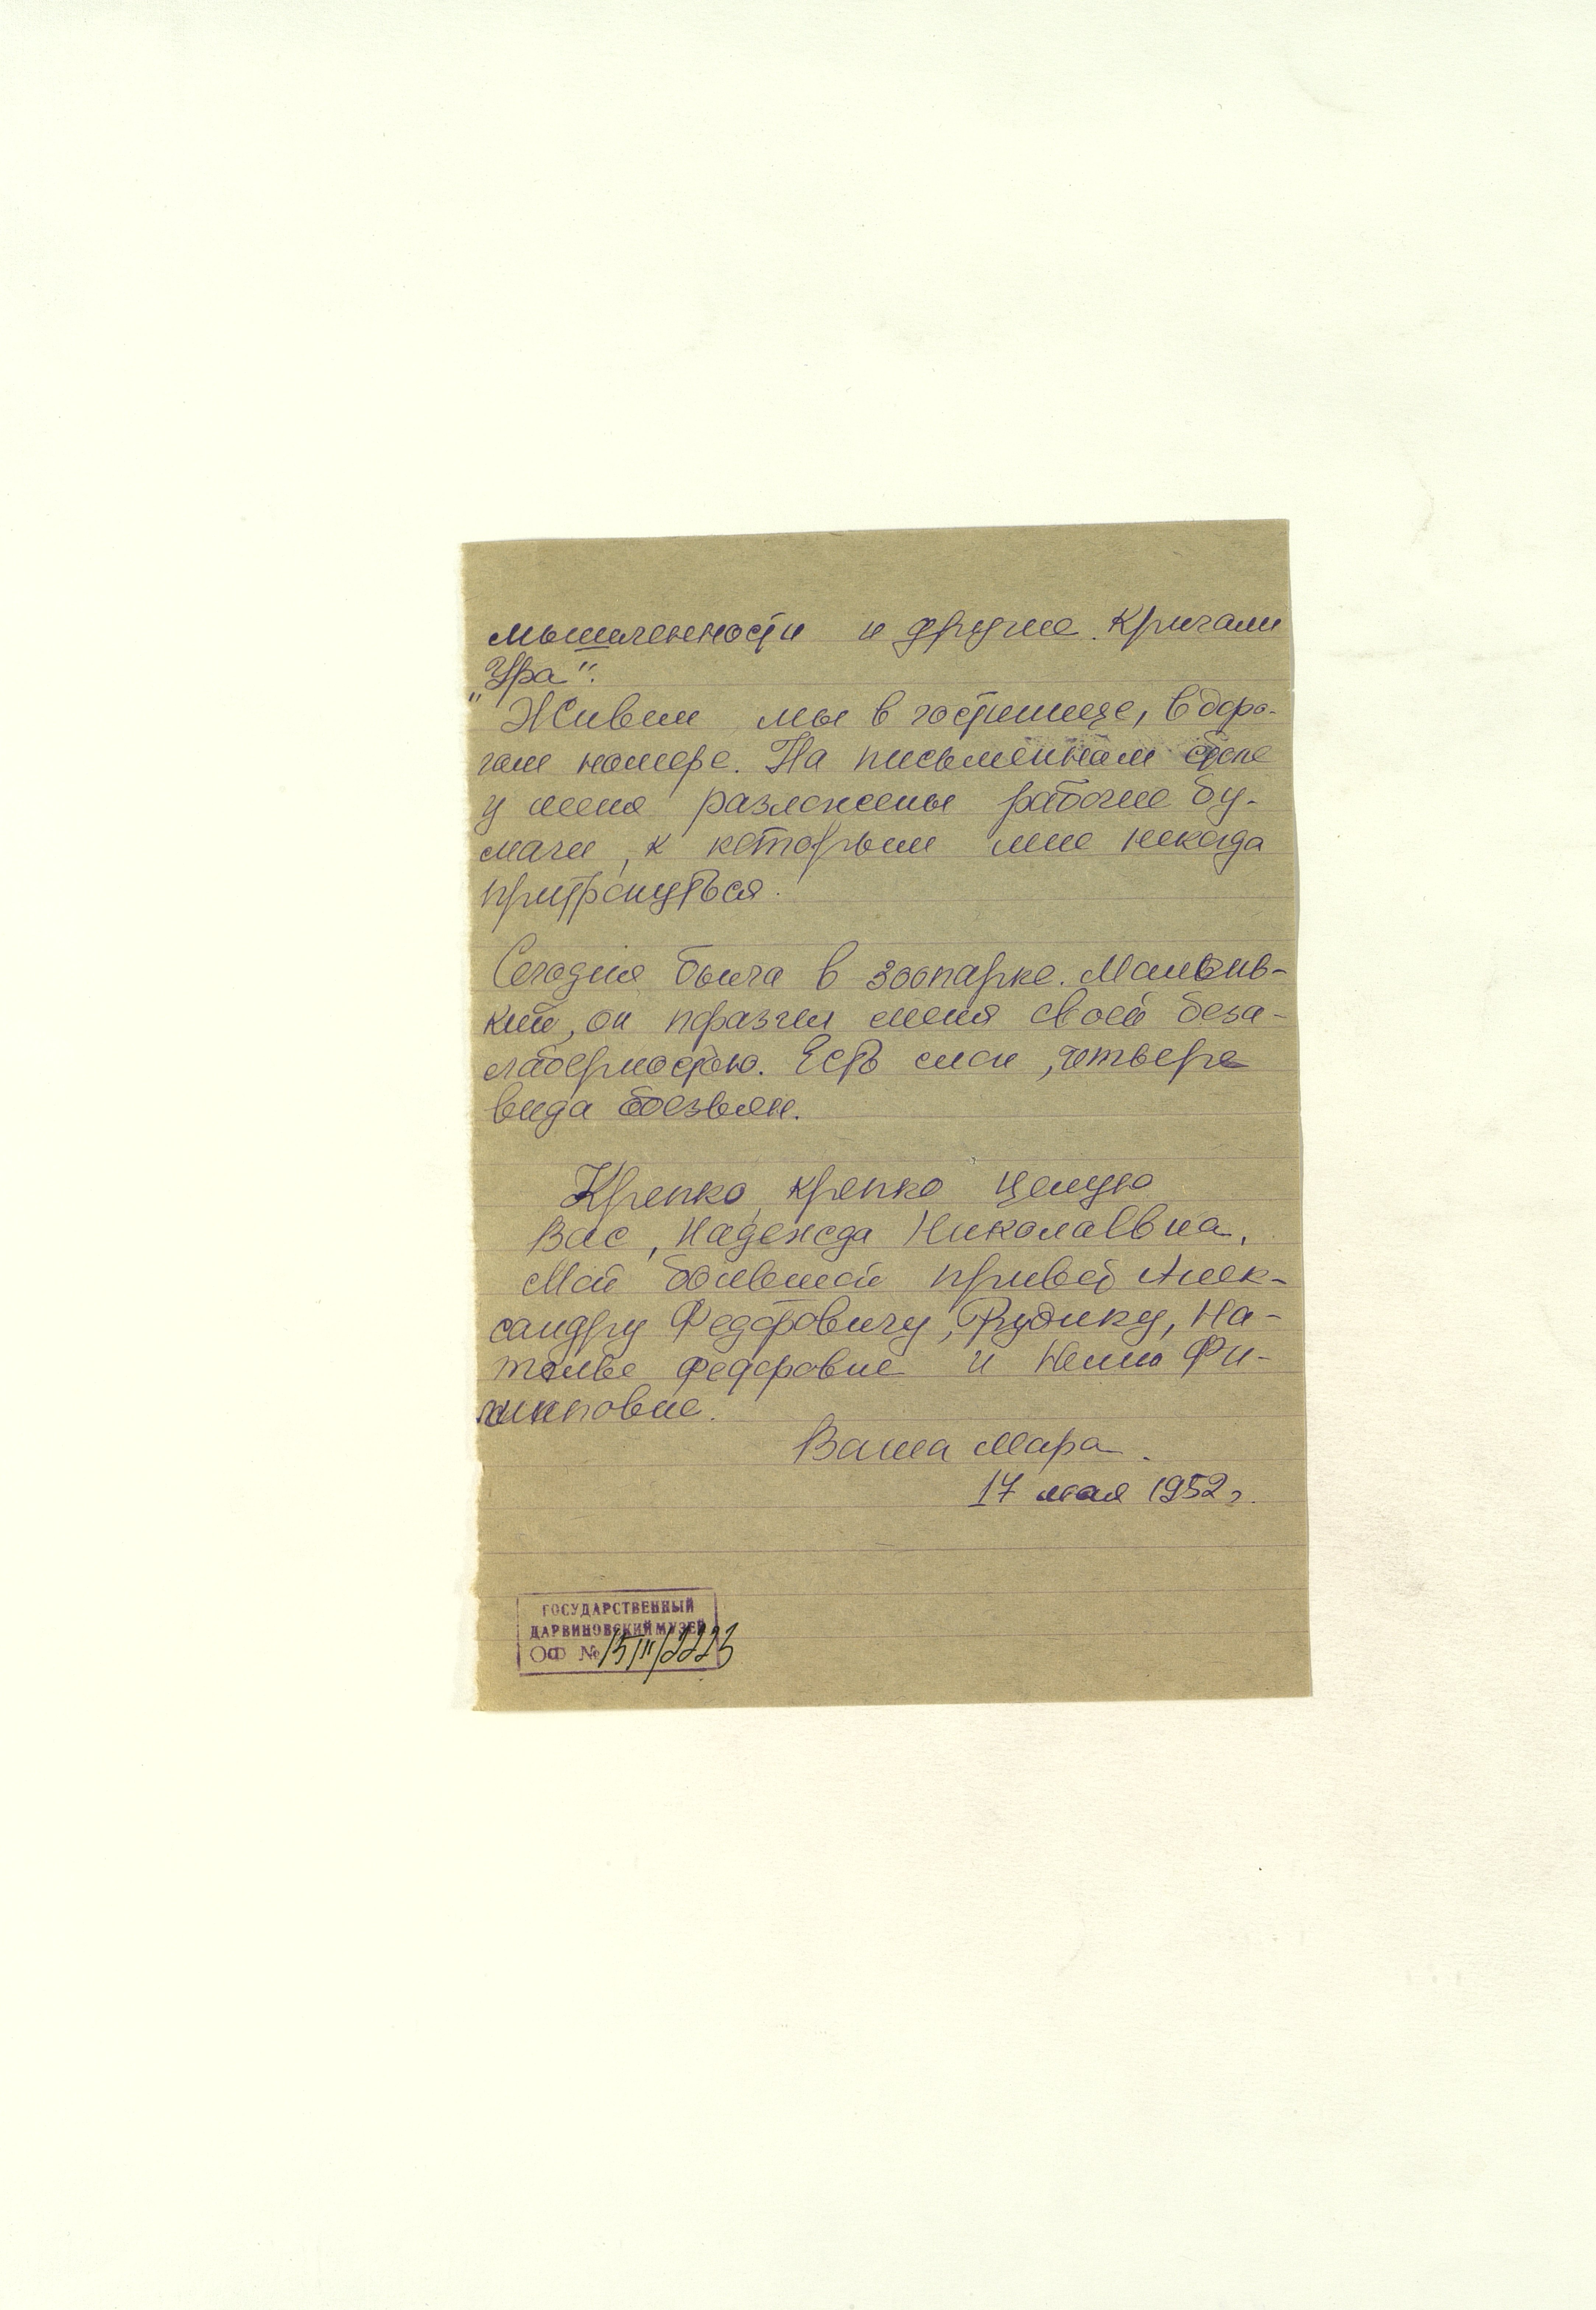 мышленности и другие. Кричали
"Ура".
Живем мы в гостинице, в доро-
гом номере. На письменном столе
у меня разложены рабочие бу-
маги, к которым мне некогда
притронуться.
Сегодня была в зоопарке. Малень-
кий, он поразил меня своей беза-
лаберностью. Есть слон, четверо
вида обезьян.
Крепко, крепко целую
Вас, Надежда Николаевна.
Мой большой привет Алек-
сандру Федоровичу, Рудику, На-
талье Федоровне и Филипповне.
Ваша Мара.
17 мая 1952 г.
ГОСУДАРСТВЕННЫЙ
ДАРВИНОВСКИЙ МУЗЕЙ
ОФ №